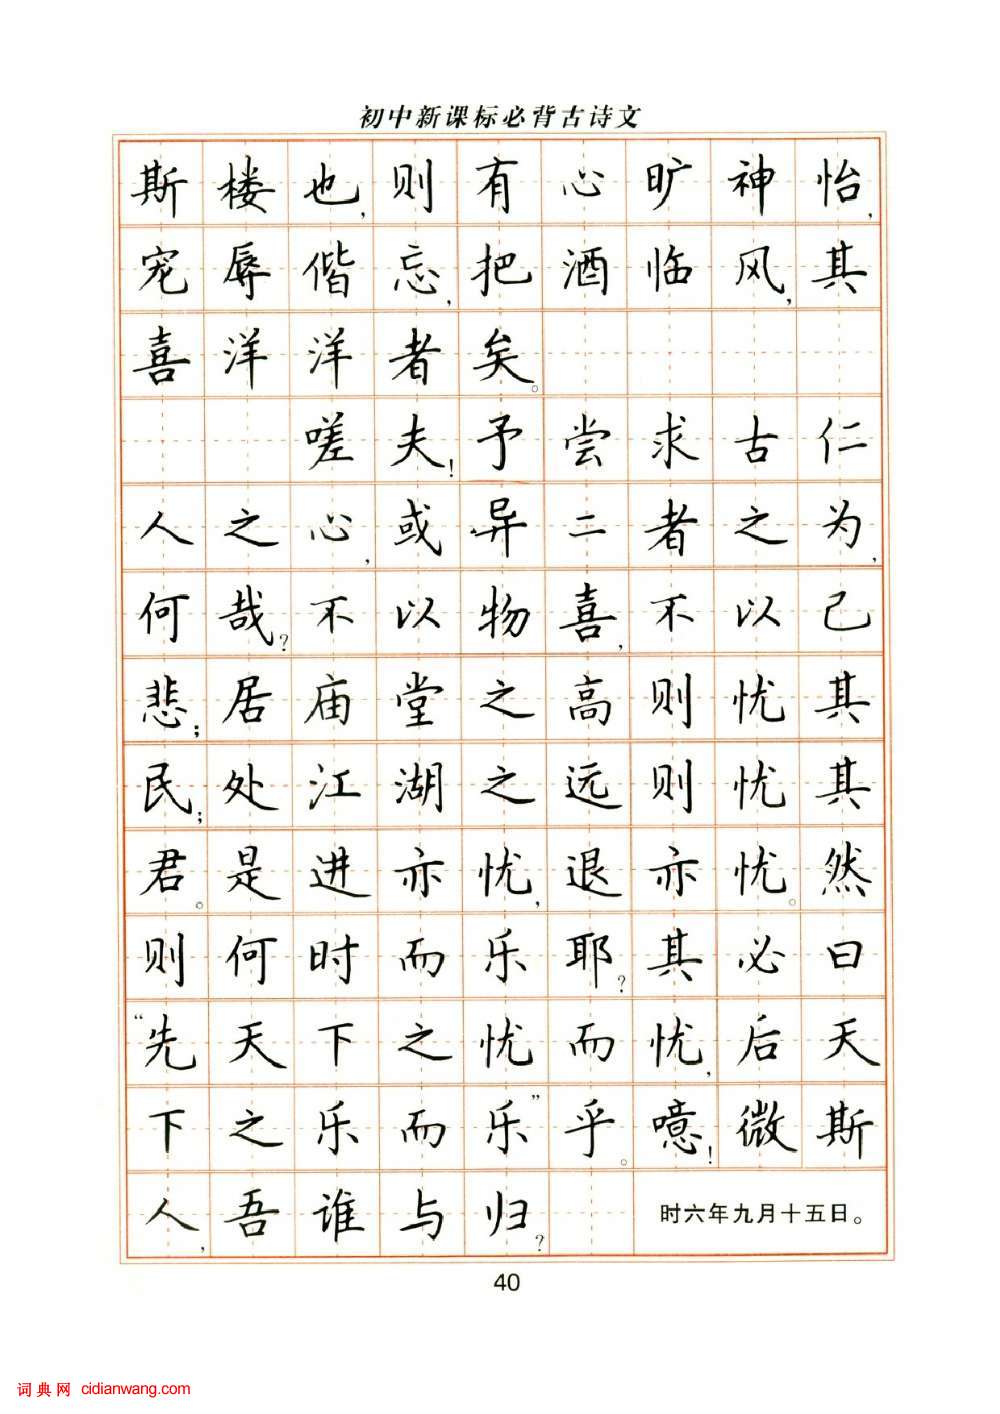 初中新课标必背古诗文
斯楼也,则有心旷神怡,
宠辱偕忘,把酒临风,其
喜洋洋者矣。
嗟夫!予尝求古仁
人之心,或异二者之为,
何哉?不以物喜,不以己
悲;居庙堂之高则忧其
民;处江湖之远则忧其
君。是进亦忧,退亦忧。然
则何时而乐耶?其必曰
“先天下之忧而忧,后天
下之乐而乐”乎。噫!微斯
人,吾谁与归?
时六年九月十五日。
40
词典网 cidianwang.com